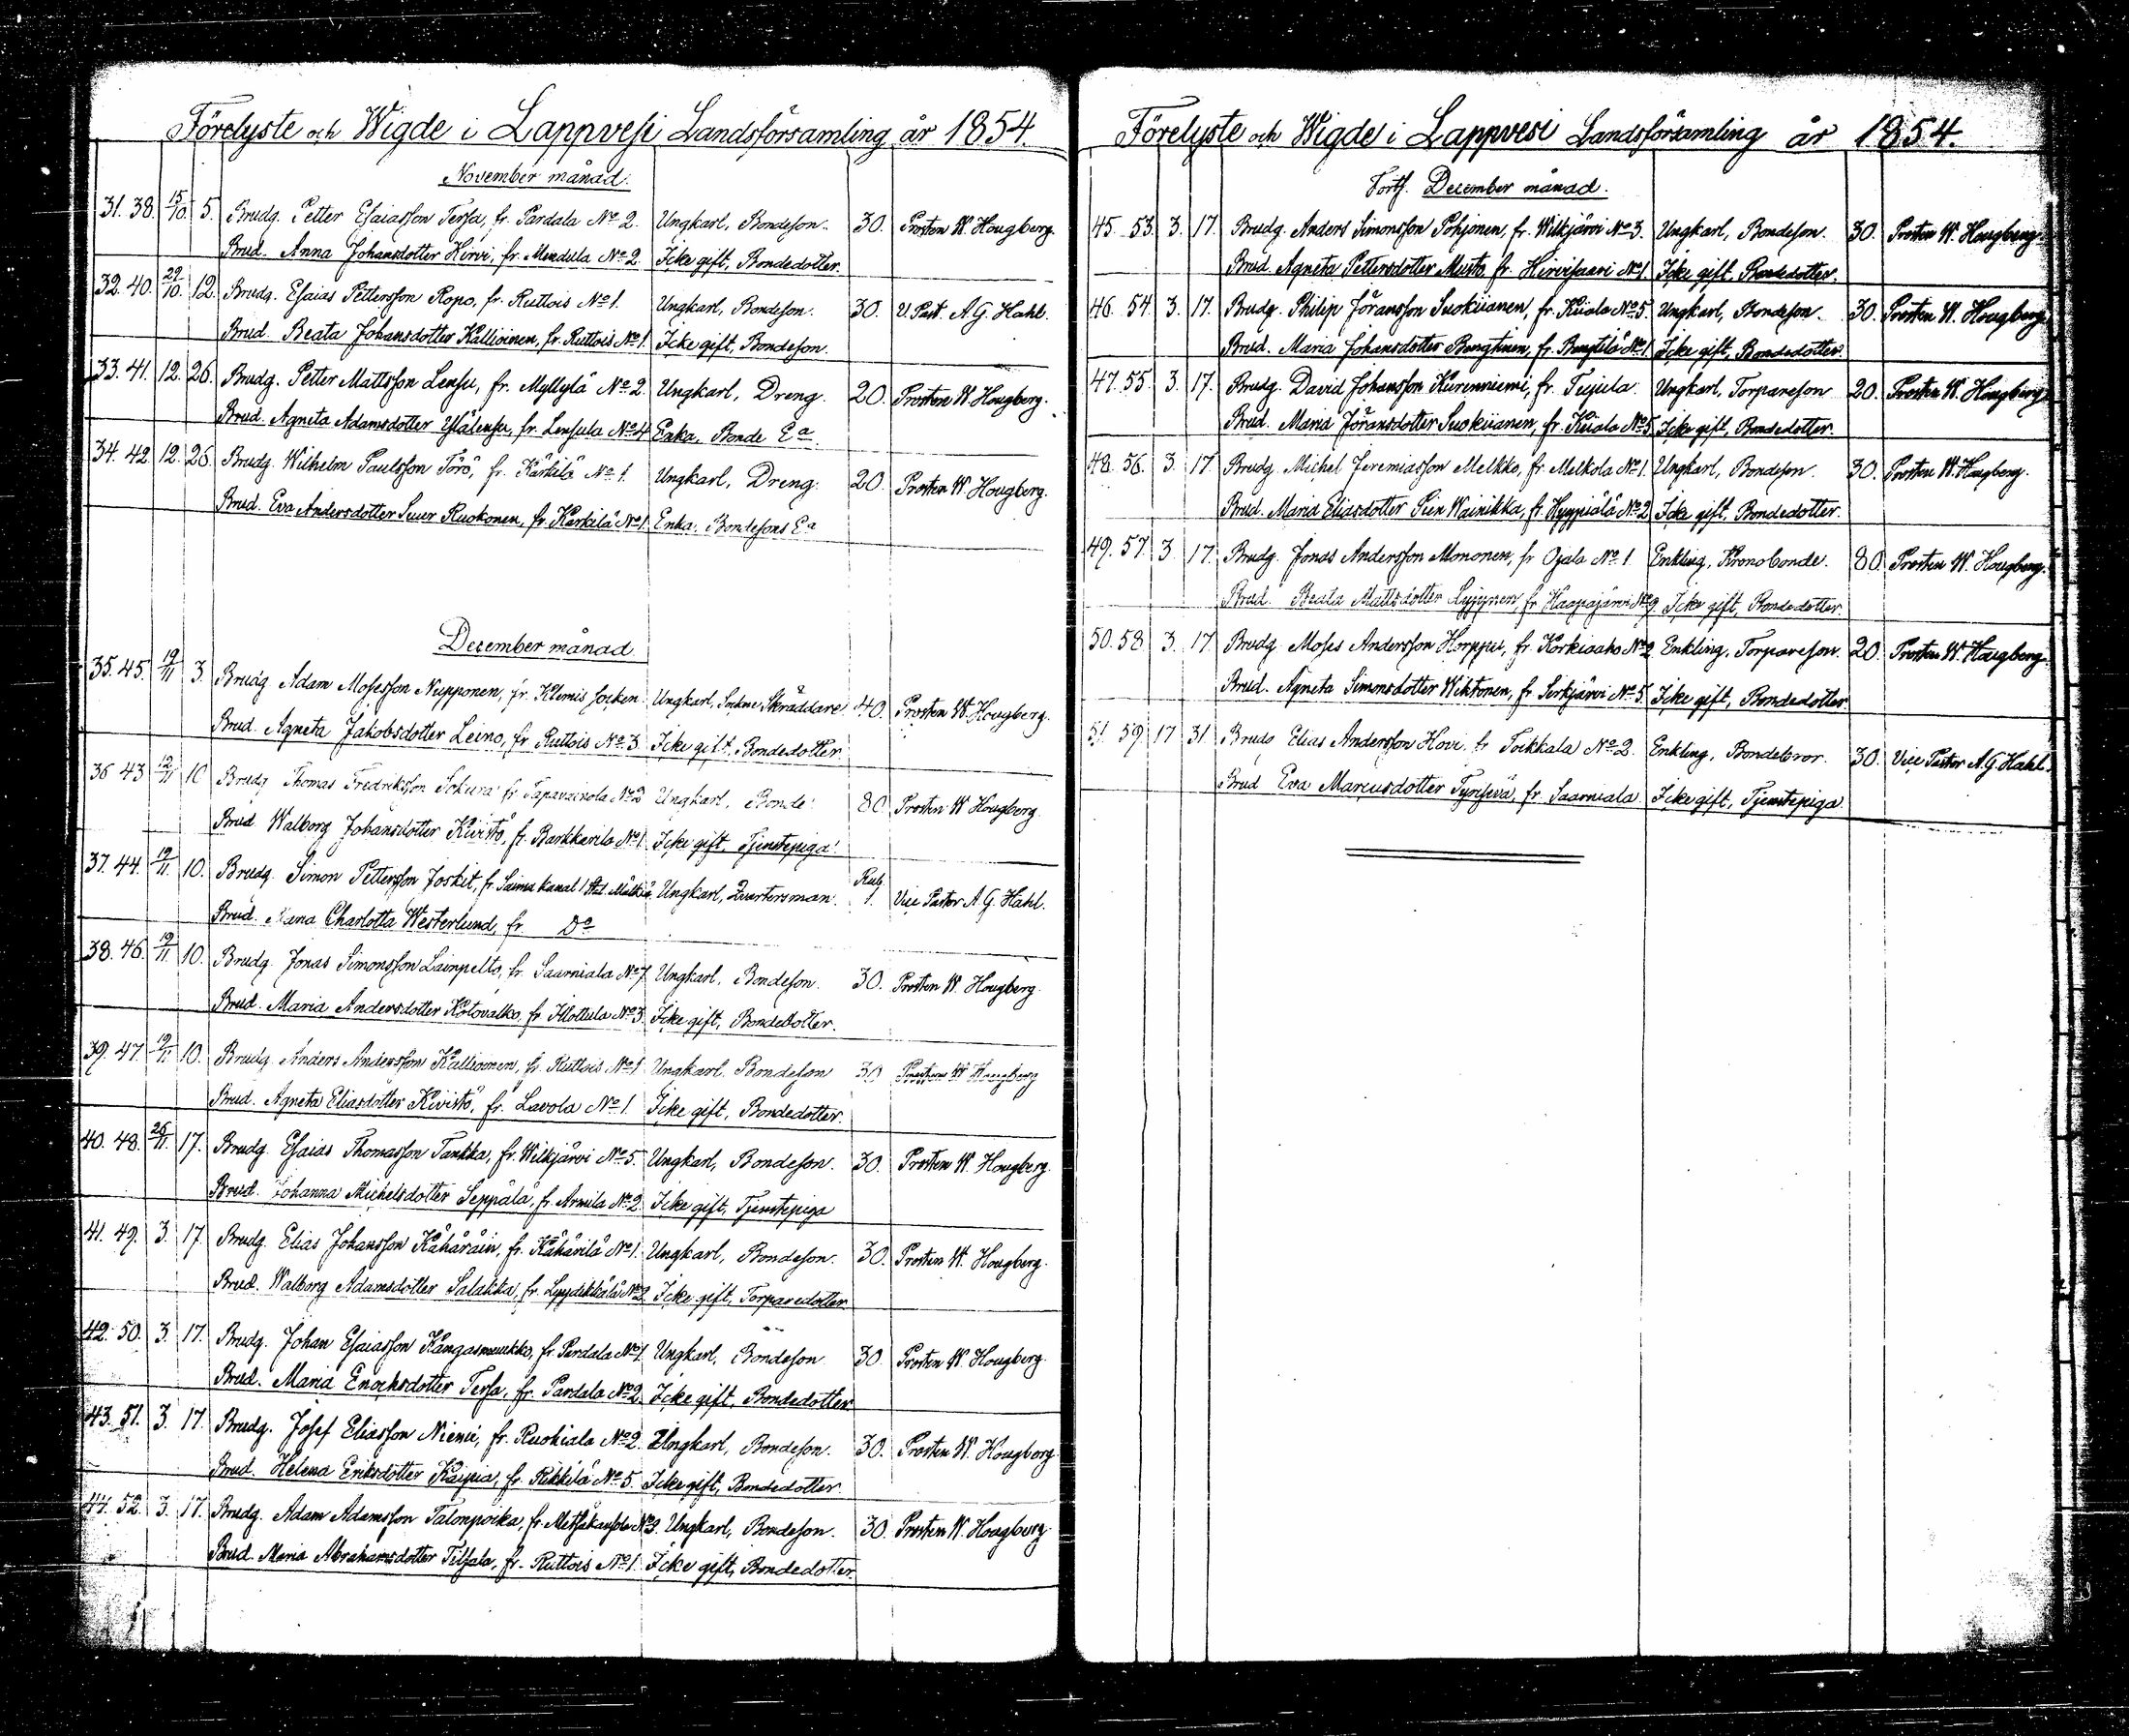 Förelyste och Wigde i Lappvesi Landsförsamling år 1854.
November månad.
31. 38. 15/10. 5. Brudg. Petter Esaiasson Tersa, fr. Pardala No 2. Ungkarl, Bondeson. 30. Prosten W. Hougberg.
Brud. Anna Johansdotter Hirvi, fr. Mendula No 2 Icke gift, Bondedotter.
32. 40. 29/10. 12. Brudg. Esaias Pettersson Ropo, fr. Ruttois No 1. Ungkarl, Bondeson. 30. V. Past. A. G. Hahl.
Brud. Beata Johansdotter Kallioinen, fr. Ruttois No 1. Icke gift, Bondeson.
33. 41. 12. 26. Brudg. Petter Mattsson Lensu, fr. Myllylä No 2 Ungkarl, Dreng. 20. Prosten W. Hougberg.
Brud. Agneta Adamsdotter Ylälensu, fr. Lensula No 4 Enka, Bonde Ea.
34. 42. 12. 26. Brudg. Wilhelm Paulsson Törö, fr. Kärkilä No 1. Ungkarl, Dreng. 20. Prosten W. Hougberg.
Brud. Eva Andersdotter Suur Ruokonen, fr. Kärkilä No 1. Enka. Bondesons Ea
December månad
35. 45. 19/11 3. Brudg Adam Mosesson Nupponen, fr. Klemis socken. Ungkarl, Sockne Skräddare. 40. Prosten W. Hougberg.
Brud. Agneta Jakobsdotter Leino, fr Ruttois No 3. Icke gift. Bondedotter
36 43 12/11 10 Brudg Thomas Fredriksson Sokura fr Tapavainola No 2 Ungkarl, Bonde. 80. Prosten W Hougberg
Brud Walborg Johansdotter Kivistö, fr. Karkkarila No 1 Icke gift. Tjenstepiga.
37. 44. 12/11. 10. Brudg. Simon Pettersson Joskit, fr. Saima kanal 1 Std. Mälkiä Ungkarl, Qvartersman. Rub. 1. Vice Pastor A. G. Hahl.
Brud. Charlotta Westerlund, fr. Do
38. 46. 19/11. 10. Brudg. Jonas Simonsson Lainpelto, fr. Saarniala No 7. Ungkarl, Bondeson. 30. Prosten W. Hougberg.
Brud. Maria Andersdotter Kotovalko, fr. Ilottula No 3. Icke gift, Bondedotter.
39. 47. 19/11. 10. Brudg. Anders Andersson Kallioinen, fr. Ruttois No 1 Ungkarl. Bondeson 30 Prosten W Hougberg
Brud. Agneta Eliasdotter Kivistö, fr. Lavola No 1. Icke gift, Bondedotter.
40. 48. 26/11. 17. Brudg. Esaias Thomasson Tankka, fr. Wilkjärvi No 5. Ungkarl, Bondeson. 30. Prosten W. Hougberg.
Brud. Johanna Michelsdotter Seppälä, fr. Armila No 2 Icke gift, Tjenstepiga
41. 49. 3. 17. Brudg. Elias Johansson Kähäräin, fr. Kähärilä No 1. Ungkarl, Bondeson. 30. Prosten W. Hougberg.
Brud. Walborg Adamsdotter Salakka, fr. Lyydikkälä No 2. Icke gift, Torparedotter.
42. 50. 3. 17. Brudg. Johan Esaiasson Kangasmuukko, fr. Pardala No 1 Ungkarl, Bondeson 30. Prosten W. Hougberg.
Brud. Maria Enochsdotter Tersa, fr. Pardala No 2 Icke gift. Bondedotter.
43. 51. 3. 17. Brudg. Josef Eliasson Niemi, fr. Ruohiala No 2. Ungkarl, Bondeson. 30. Prosten W. Hougberg
Brud. Helena Eriksdotter Kaipia, fr. Rikkilä No 5. Icke gift, Bondedotter.
44. 52. 3. 17. Brudg. Adam Adamsson Talonpoika, fr. Metsäkansola No 3. Ungkarl, Bondeson. 30. Prosten W. Hougberg.
Brud. Maria Abrahamsdotter Tilsala, fr. Ruttois No 1. Icke gift, Bondedotter.
Förelyste och Wigde i Lappvesi Landsförsamling år 1854.
Forts. December månad.
45. 53. 3. 17. Brudg. Anders Simonsson Pohjonen, fr. Wilkjärvi No 3. Ungkarl, Bondeson. 30. Prosten W. Hougberg.
Brud. Agneta Pettersdotter Musto fr. Hirvisaari No 1 Icke gift. Bondedotter.
46. 54. 3. 17. Brudg. Philip Göransson Suokiianen, fr. Kiiala No 5. Ungkarl, Bondeson. 30. Prosten W. Hougberg.
Brud. Maria Johansdotter Bengtinen, fr. Bengtilä No 1. Icke gift, Bondedotter.
47. 55. 3. 17. Brudg. David Johansson Kurenniemi, fr. Tujula. Ungkarl, Torpareson 20. Prosten W. Hougberg.
Brud. Maria Göransdotter Suokiianen, fr. Kiiala No 5. Icke gift, Bondedotter.
48. 56. 3. 17. Brudg. Michel Jeremiasson Melkko, fr. Melkola No 1. Ungkarl, Bondeson. 30. Prosten W. Hougberg.
Brud. Maria Eliasdotter Pien Wainikka, fr. Hyypiälä No 2 Icke gift, Bondedotter.
49. 57. 3. 17. Brudg. Jonas Andersson Mononen, fr Ojala No 1 Enkling, Kronobonde. 80. Prosten W. Hougberg.
Brud. Beata Mattsdotter Lyyynen, fr Haapajärvi No 9. Icke gift, Bondedotter.
50. 58. 3. 17. Brudg. Moses Andersson Horppu, fr. Korkiaaho No 2. Enkling, Torpareson. 20. Prosten W. Hougberg.
Brud. Agneta Simonsdotter Wiktonen, fr. Sirkjärvi No 5. Icke gift, Bondedotter
51. 59. 17. 31. Brudg Elias Andersson Hovi, fr Toikkala No 2. Enkling, Bondebror. 30. Vice Pastor A. G. Hahl.
Brud Eva Marcusdotter Tynjevä, fr. Saarniala Icke gift, Tjenstepiga.